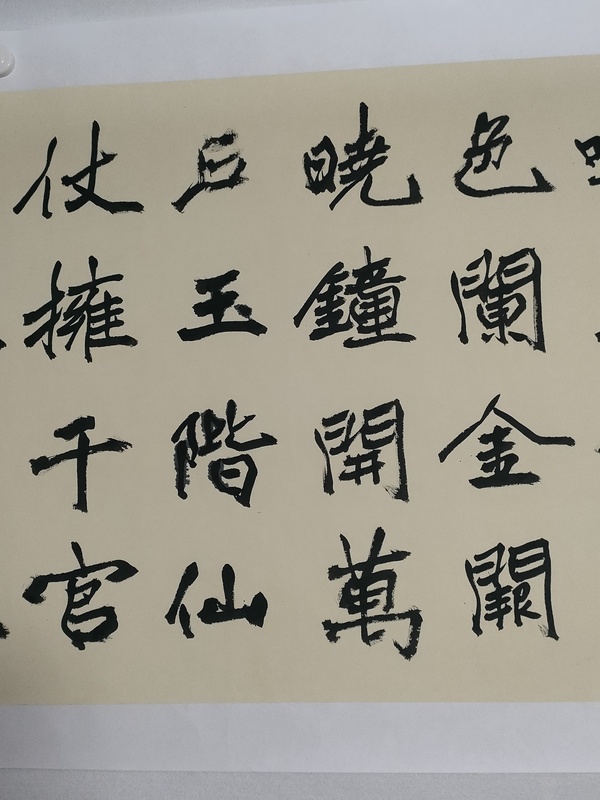 色闌金闕
曉鐘開萬
戶玉階仙
仗擁千官